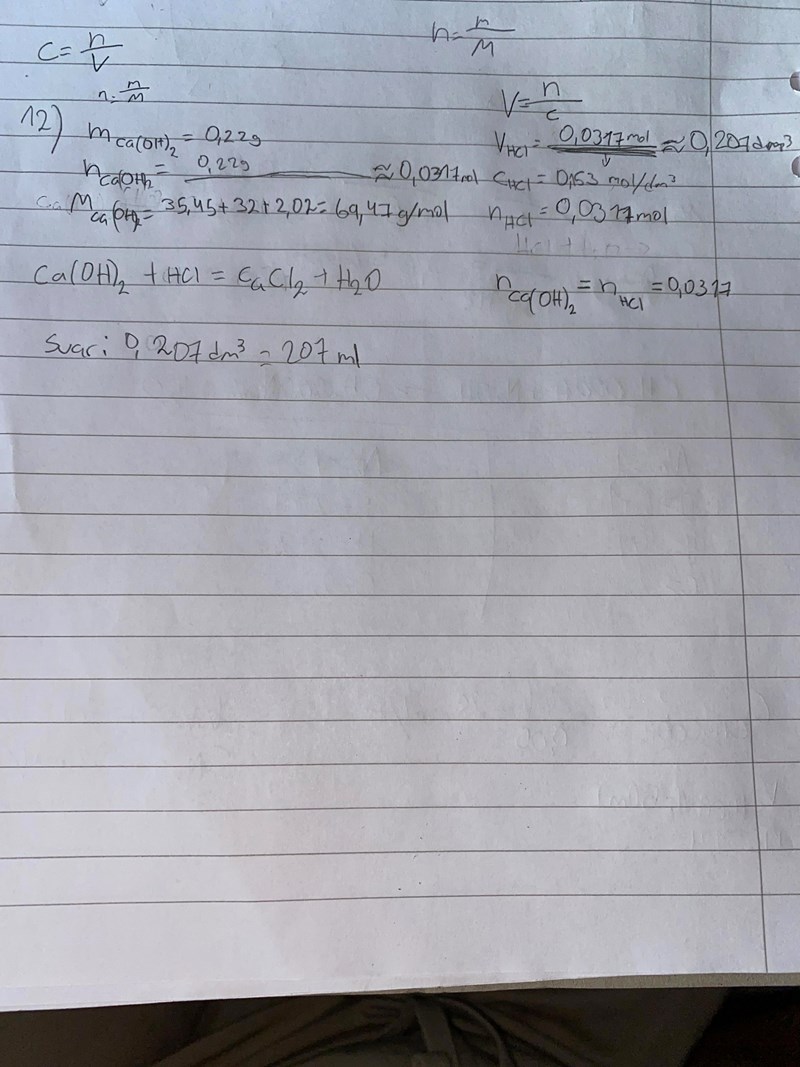 C = n/V
n = m/M
n = m/M
12) m Ca(OH)2 = 0,22g
n Ca(OH)2 = 0,22g/ ≈ 0,0317mol
M Ca(OH)2 = 35,45+32+2,02 = 69,47 g/mol
Ca(OH)2 + HCl = CaCl2 + H2O
Svar: 0,207 dm³ = 207 ml
V = n/c
V HCl = 0,0317 mol/ ≈ 0,207 dm³
C HCl = 0,153 mol/dm³
n HCl = 0,0317 mol
n Ca(OH)2 = n HCl = 0,0317